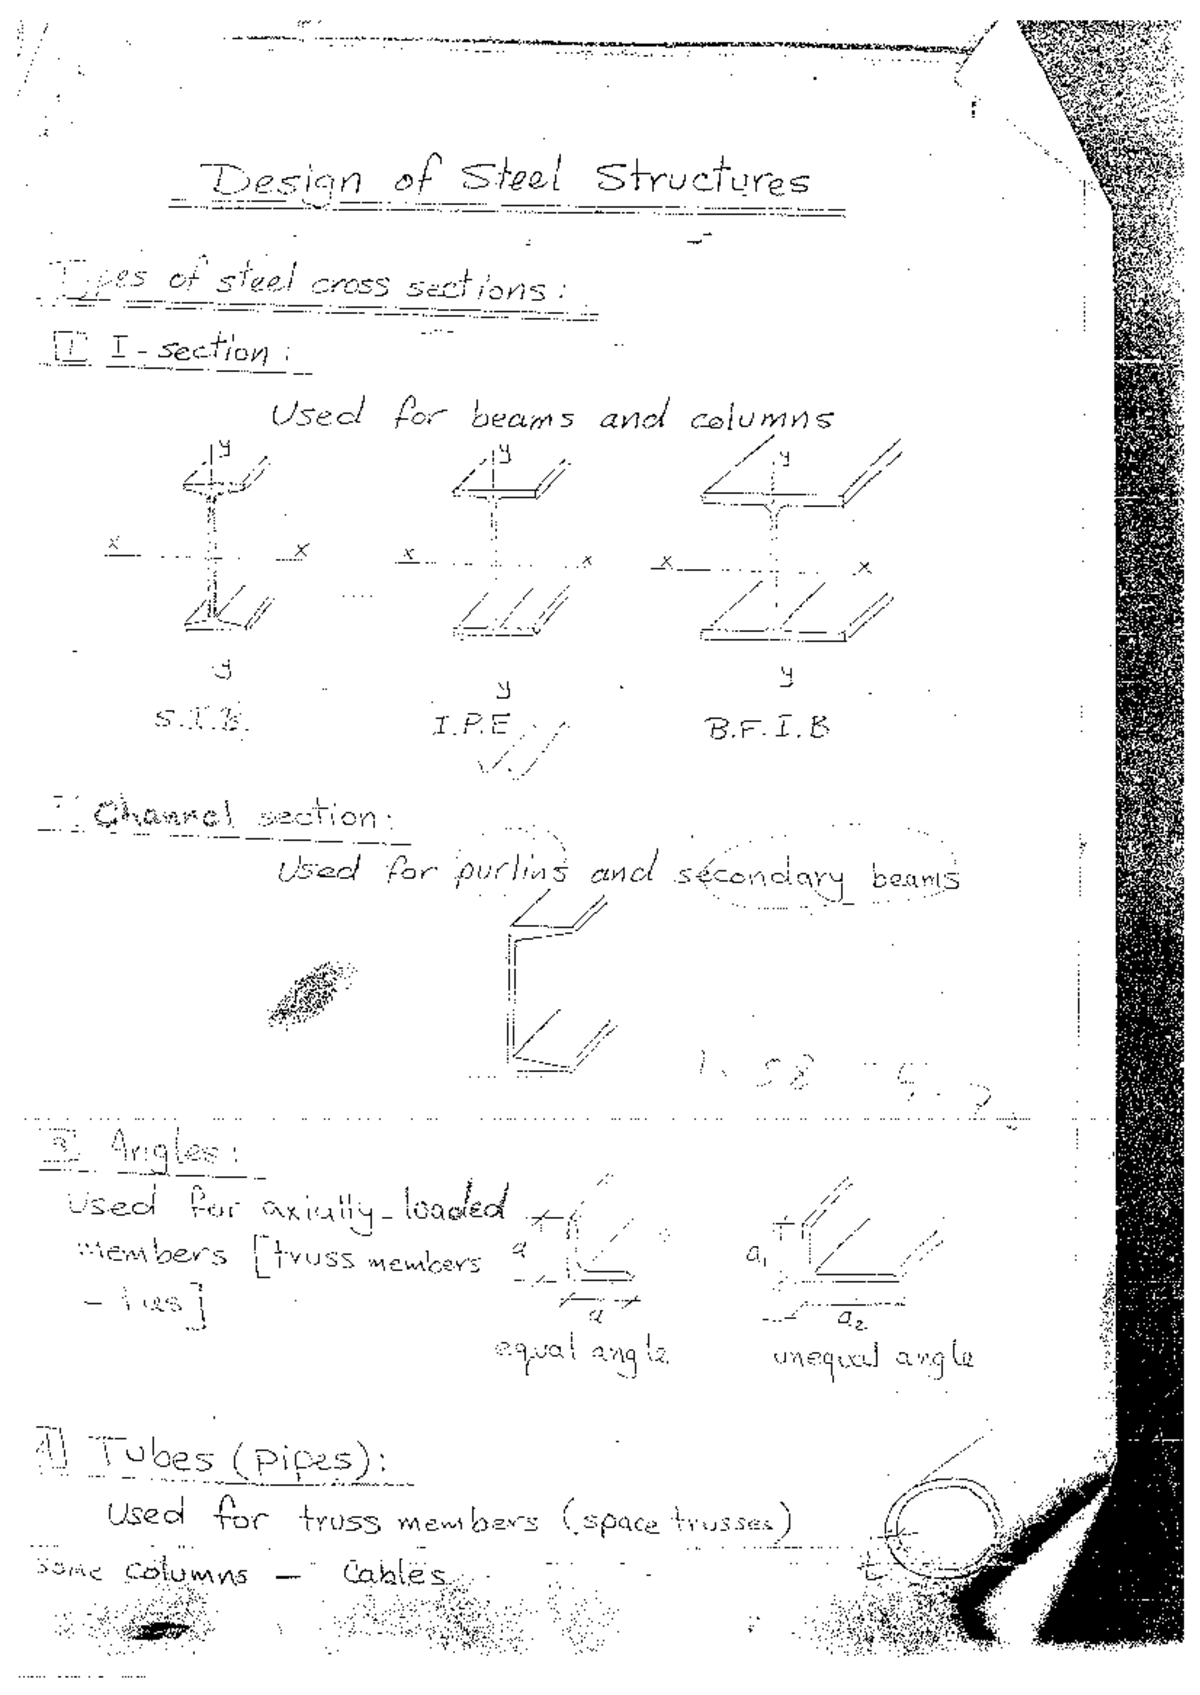 Design of Steel Structures
Types of steel cross sections:
1 I-section:
Used for beams and columns
y y y
x x x x x x
y y y
S.I.B. I.P.E B.F.I.B
Channel section:
Used for purlins and secondary beams
3 Angles:
Used for axially-loaded
members [truss members
- ties]
a a₁
a a₂
equal angle unequal angle
4 Tubes (pipes):
Used for truss members (space trusses)
some columns - Cables
t